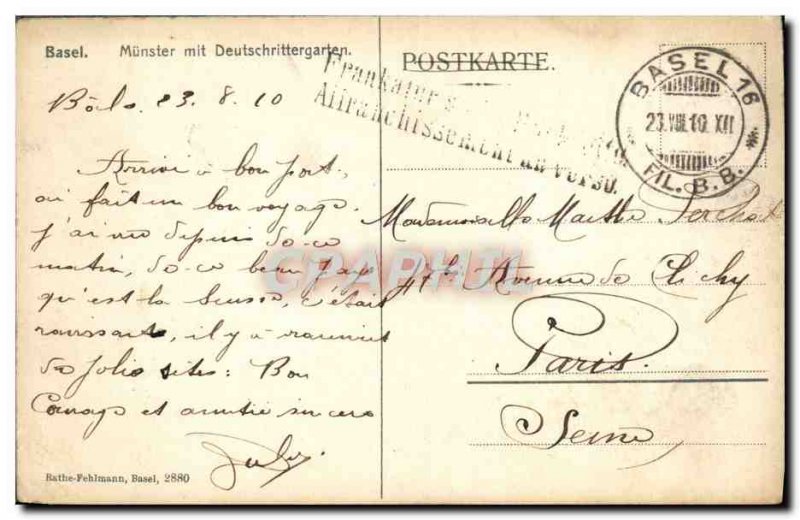 Basel. Münster mit Deutschrittergarten.
POSTKARTE.
Frankatur
Affranchissement au verso.
BASEL 16
23.VIII.10. XII
FIL. B. B.
Bâle 23. 8. 10
Arrivé à bon port,
ai fait un bon voyage.
J'ai vu depuis de ce
matin, de ce beau pays
qu'est la Suisse, c'était
ravissant, il y a vraiment
de jolis sites: Bon
Courage et amitié sincère
Mademoiselle Marthe
47 bis Avenue de Clichy
Paris.
Seine
CPAPHIL
Rathe-Fehlmann, Basel, 2880